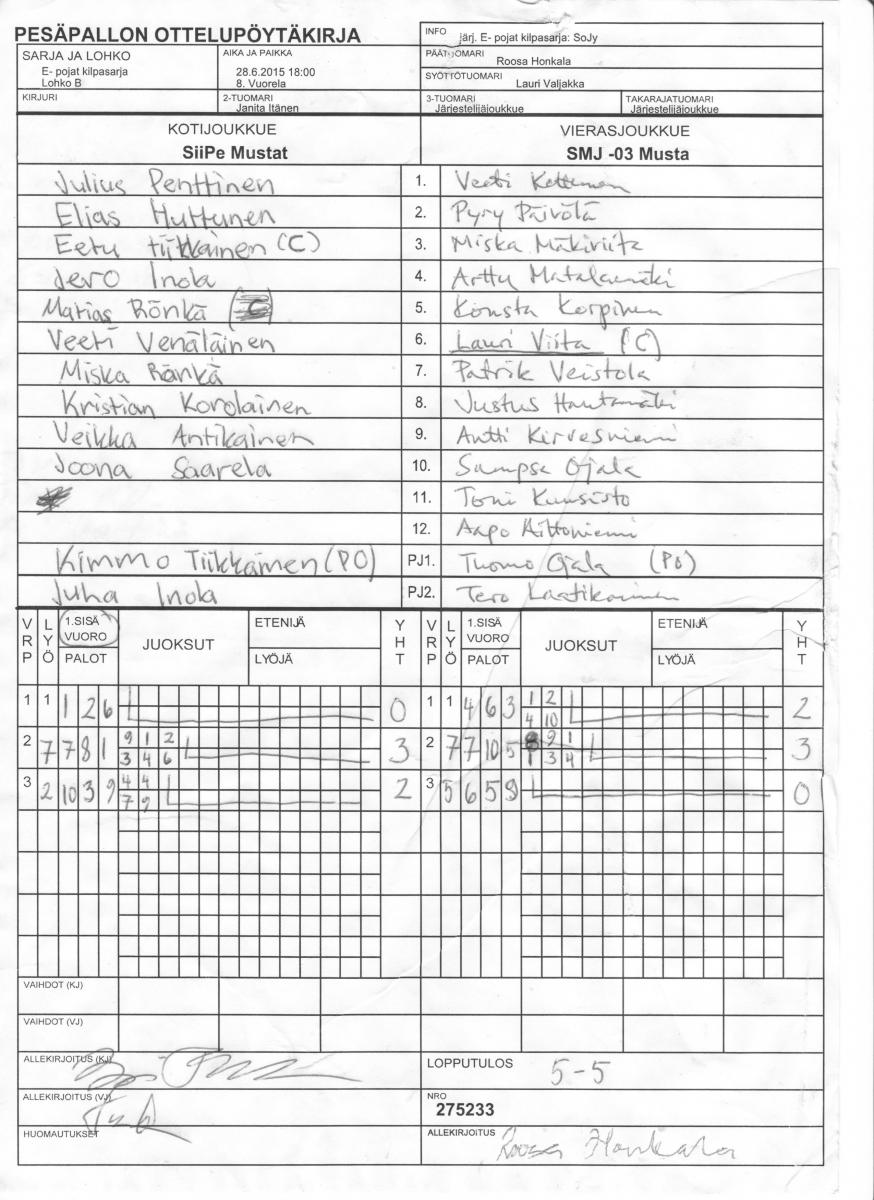 PESÄPALLON OTTELUPÖYTÄKIRJA
INFO järj. E- pojat kilpasarja: SoJy
SARJA JA LOHKO
E- pojat kilpasarja
Lohko B
AIKA JA PAIKKA
28.6.2015 18:00
8. Vuorela
PÄÄTUOMARI
Roosa Honkala
SYÖTTÖTUOMARI
Lauri Valjakka
KIRJURI
2-TUOMARI
Janita Itänen
3-TUOMARI
Järjestelijäjoukkue
TAKARAJATUOMARI
Järjestelijäjoukkue
KOTIJOUKKUE
SiiPe Mustat
VIERASJOUKKUE
SMJ -03 Musta
Julius Penttinen 1. Veeti Kettunen
Elias Huttunen 2. Pyry Päivölä
Eetu Tiikkainen (C) 3. Miska Mäkiviita
Jero Inola 4. Arttu Matalamäki
Matias Rönkä 5. Konsta Korpinen
Veeti Venäläinen 6. Lauri Viita (C)
Miska Rönkä 7. Patrik Veistola
Kristian Korolainen 8. Justus Hautamäki
Veikka Antikainen 9. Antti Kirvesniemi
Joona Saarela 10. Sampsa Ojala
11. Toni Kuusisto
12. Aapo Hiltoniemi
Kimmo Tiikkainen (PO) PJ1. Tuomo Ojala (PO)
Juha Inola PJ2. Tero Laatikainen
VRP LYÖ 1.SISÄ VUORO PALOT JUOKSUT ETENIJÄ LYÖJÄ YHT VRP LYÖ 1.SISÄ VUORO PALOT JUOKSUT ETENIJÄ LYÖJÄ YHT
1 1 1 2 6 0 1 1 4 6 3 1 2 2
4 10
2 7 7 8 1 9 1 2 3 2 7 7 10 5 9 1 3
3 4 6 1 3 4
3 2 10 3 9 4 4 2 3 5 6 5 9 0
7 9
VAIHDOT (KJ)
VAIHDOT (VJ)
ALLEKIRJOITUS (KJ)
LOPPUTULOS 5-5
ALLEKIRJOITUS (VJ)
NRO
275233
HUOMAUTUKSET
ALLEKIRJOITUS Roosa Honkala